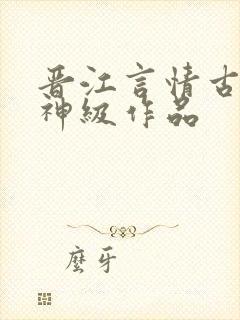 晋江言情古
神级作品
麽牙